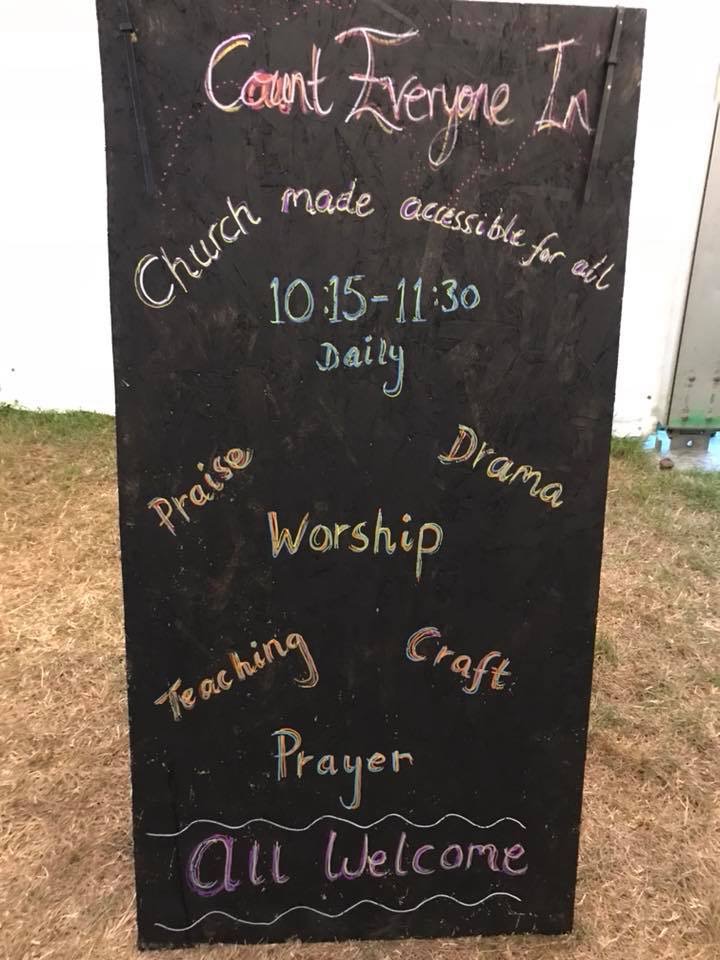 Count Everyone In
Church made accessible for all
10:15-11:30
Daily
Praise
Drama
Worship
Teaching
Craft
Prayer
All Welcome